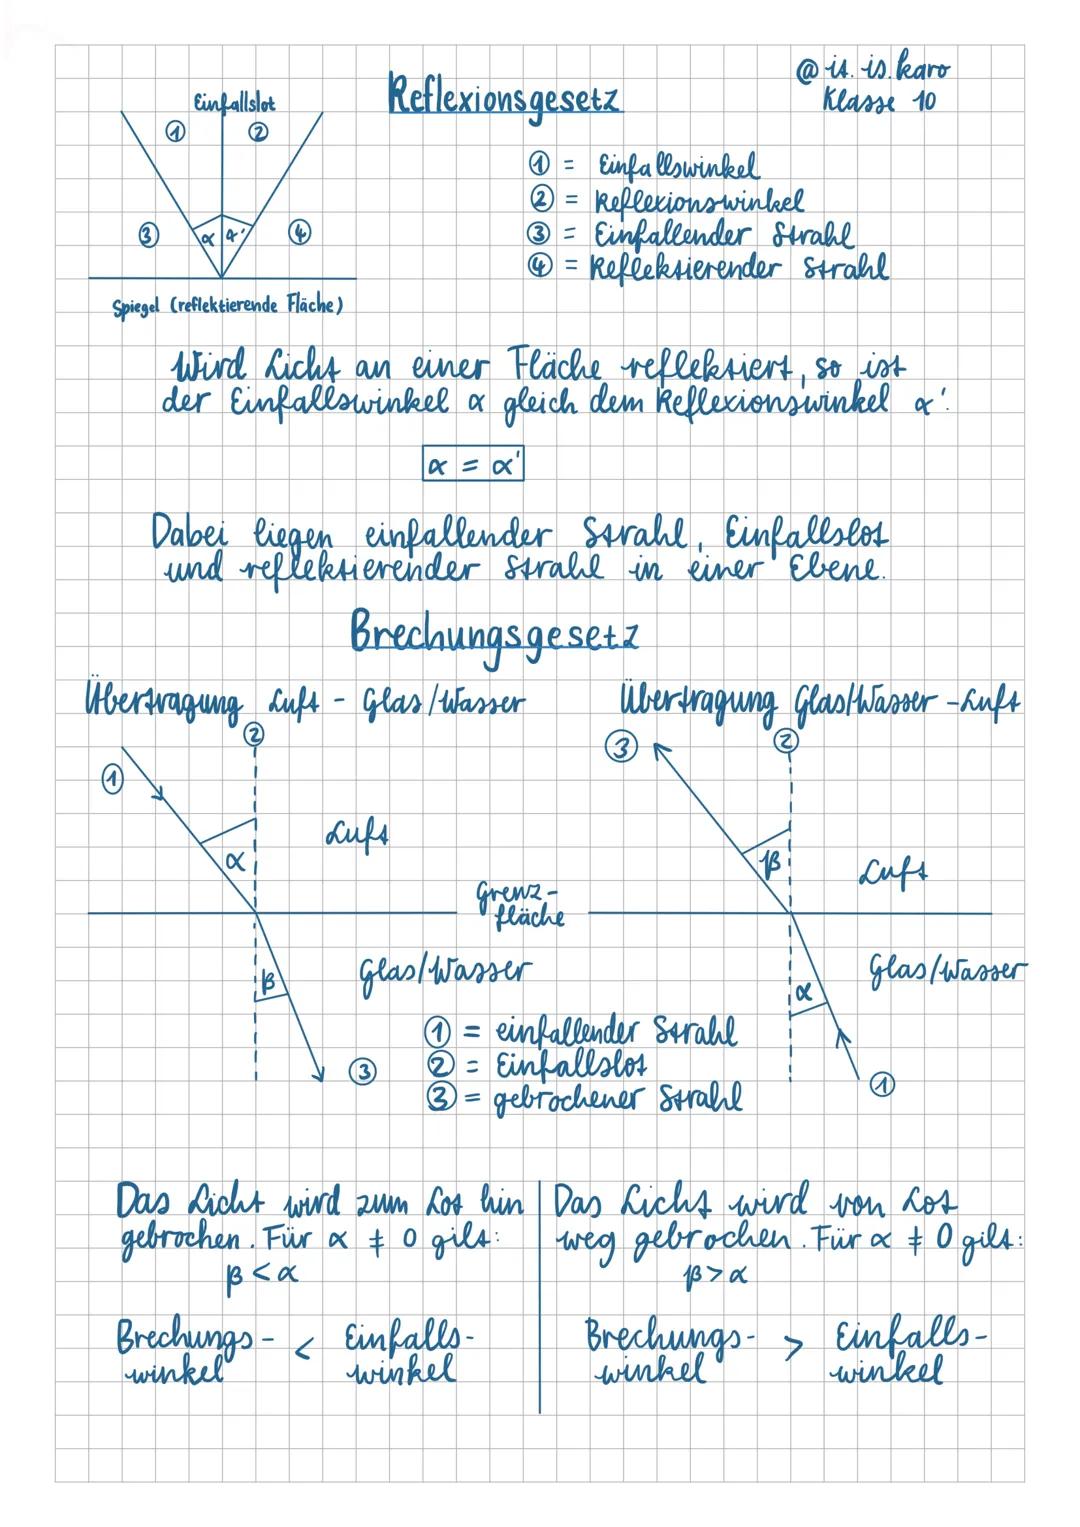 @ is.is.karo
Klasse 10
Reflexionsgesetz
Einfallslot
① ②
③ α α' ④
Spiegel (reflektierende Fläche)
① = Einfallswinkel
② = Reflexionswinkel
③ = Einfallender Strahl
④ = Reflektierender Strahl
Wird Licht an einer Fläche reflektiert, so ist
der Einfallswinkel α gleich dem Reflexionswinkel α'.
α = α'
Dabei liegen einfallender Strahl, Einfallslot
und reflektierender Strahl in einer Ebene.
Brechungsgesetz
Übertragung Luft - Glas/Wasser
②
①
α
Luft
Grenz-
fläche
β
Glas/Wasser
③
Übertragung Glas/Wasser - Luft
③
②
β
Luft
Glas/Wasser
α
①
① = einfallender Strahl
② = Einfallslot
③ = gebrochener Strahl
Das Licht wird zum Lot hin
gebrochen. Für α ≠ 0 gilt:
β < α
Brechungs- < Einfalls-
winkel winkel
Das Licht wird von Lot
weg gebrochen. Für α ≠ 0 gilt:
β > α
Brechungs- > Einfalls-
winkel winkel